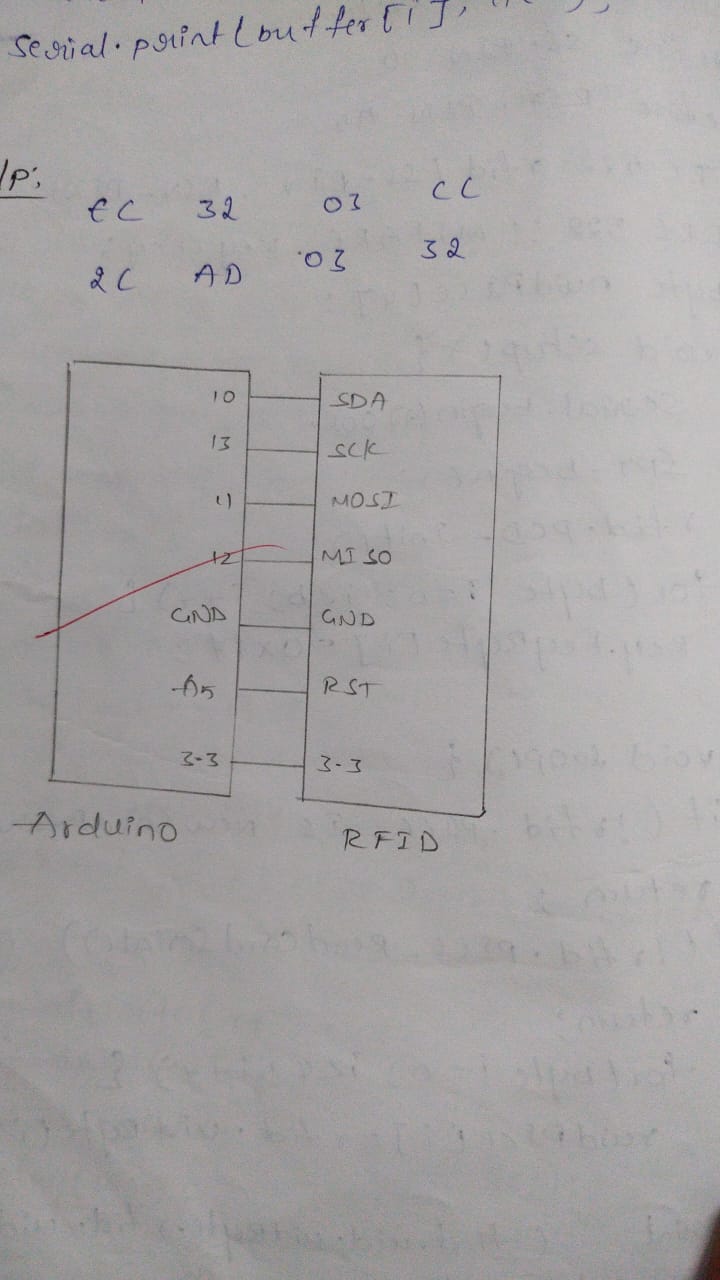 Serial.print(buffer[i],
/P:
EC 32 03 CC
2C AD 03 32
10 SDA
13 SCK
11 MOSI
12 MISO
GND GND
A5 RST
3-3 3-3
Arduino RFID